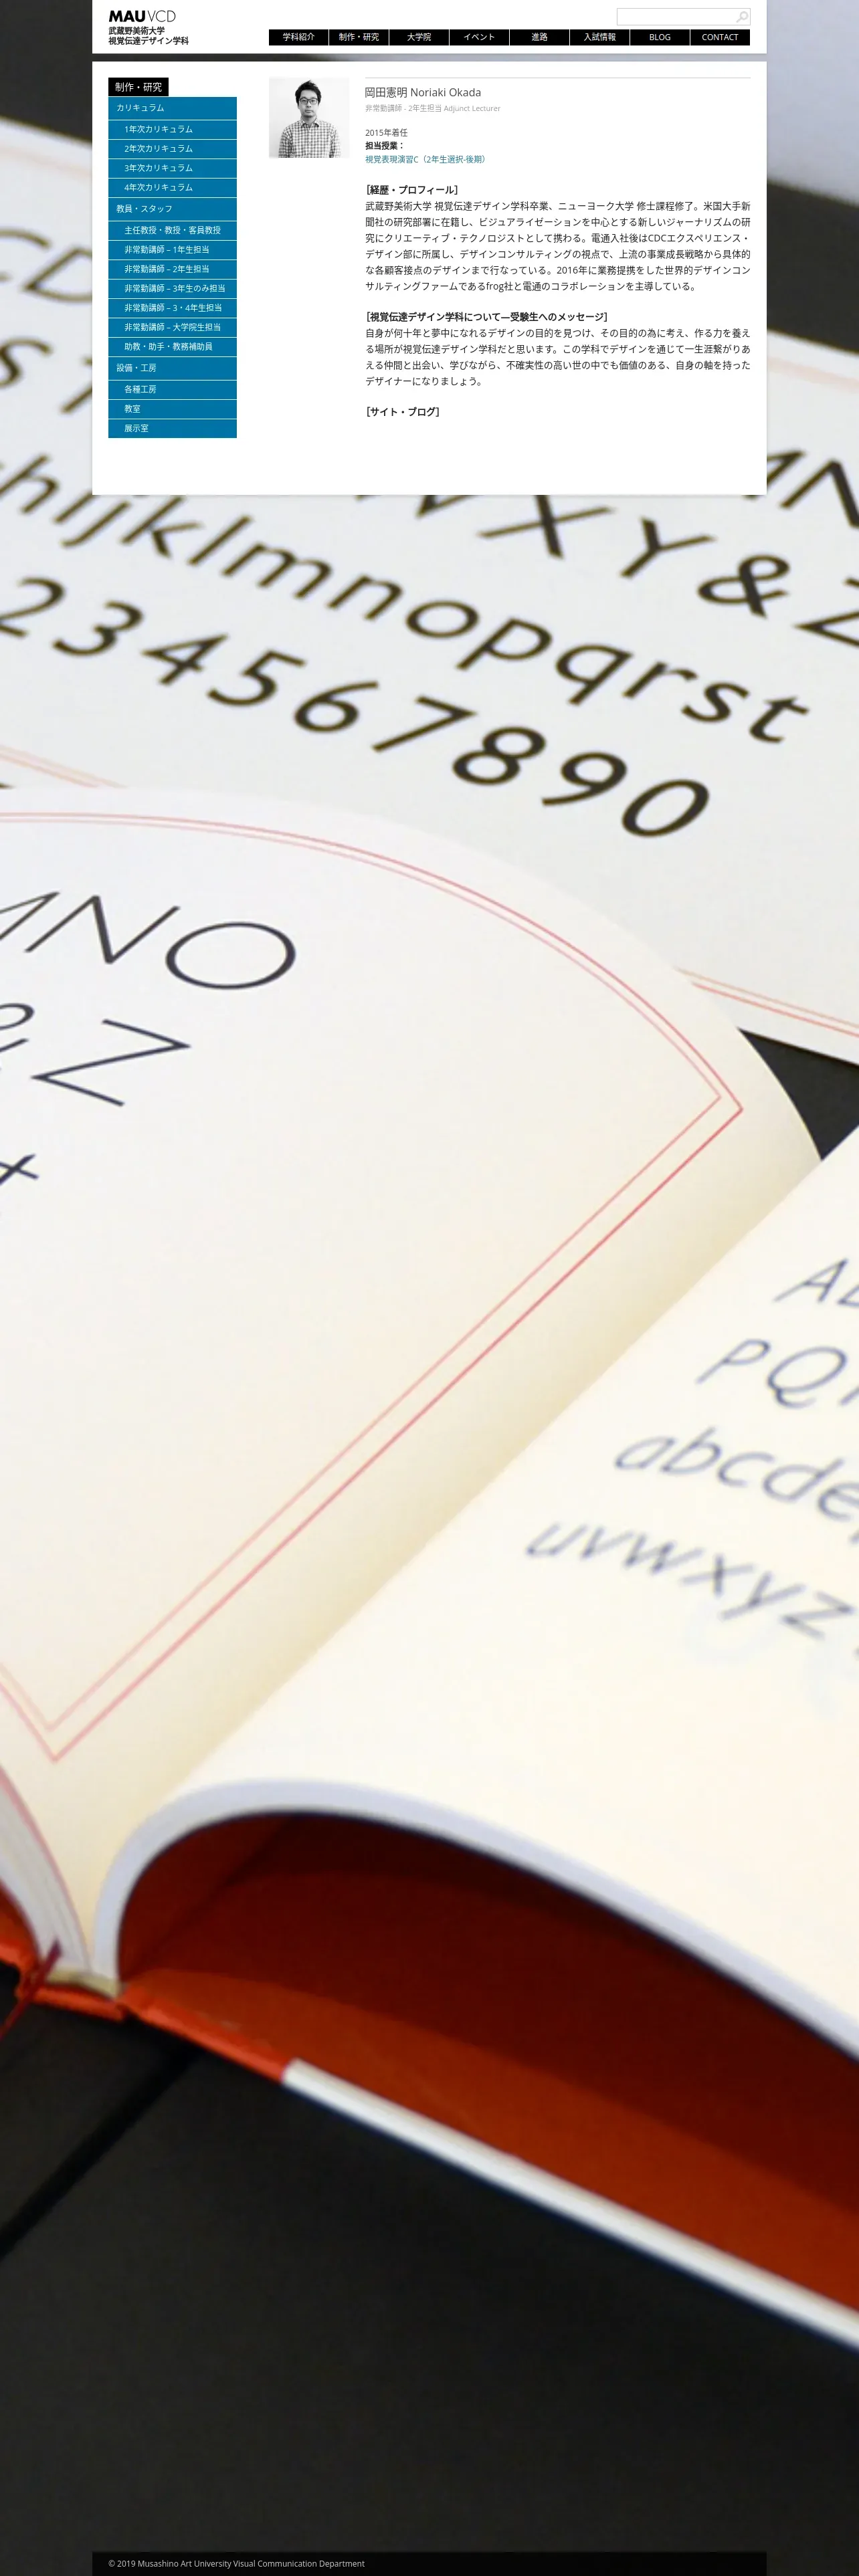 MAU VCD
武蔵野美術大学
視覚伝達デザイン学科
学科紹介 制作・研究 大学院 イベント 進路 入試情報 BLOG CONTACT
制作・研究
カリキュラム
1年次カリキュラム
2年次カリキュラム
3年次カリキュラム
4年次カリキュラム
教員・スタッフ
主任教授・教授・客員教授
非常勤講師 – 1年生担当
非常勤講師 – 2年生担当
非常勤講師 – 3年生のみ担当
非常勤講師 – 3・4年生担当
非常勤講師 – 大学院生担当
助教・助手・教務補助員
設備・工房
各種工房
教室
展示室
岡田憲明 Noriaki Okada
非常勤講師 - 2年生担当 Adjunct Lecturer
2015年着任
担当授業：
視覚表現演習C（2年生選択-後期）
［経歴・プロフィール］
武蔵野美術大学 視覚伝達デザイン学科卒業、ニューヨーク大学 修士課程修了。米国大手新
聞社の研究部署に在籍し、ビジュアライゼーションを中心とする新しいジャーナリズムの研
究にクリエーティブ・テクノロジストとして携わる。電通入社後はCDCエクスペリエンス・
デザイン部に所属し、デザインコンサルティングの視点で、上流の事業成長戦略から具体的
な各顧客接点のデザインまで行なっている。2016年に業務提携をした世界的デザインコン
サルティングファームであるfrog社と電通のコラボレーションを主導している。
［視覚伝達デザイン学科について—受験生へのメッセージ］
自身が何十年と夢中になれるデザインの目的を見つけ、その目的の為に考え、作る力を養え
る場所が視覚伝達デザイン学科だと思います。この学科でデザインを通じて一生涯繋がりあ
える仲間と出会い、学びながら、不確実性の高い世の中でも価値のある、自身の軸を持った
デザイナーになりましょう。
［サイト・ブログ］
X Y & Z
hijklmnopqrst
234567890
NO
Z
PQ
abcde
uvwxyz
© 2019 Musashino Art University Visual Communication Department